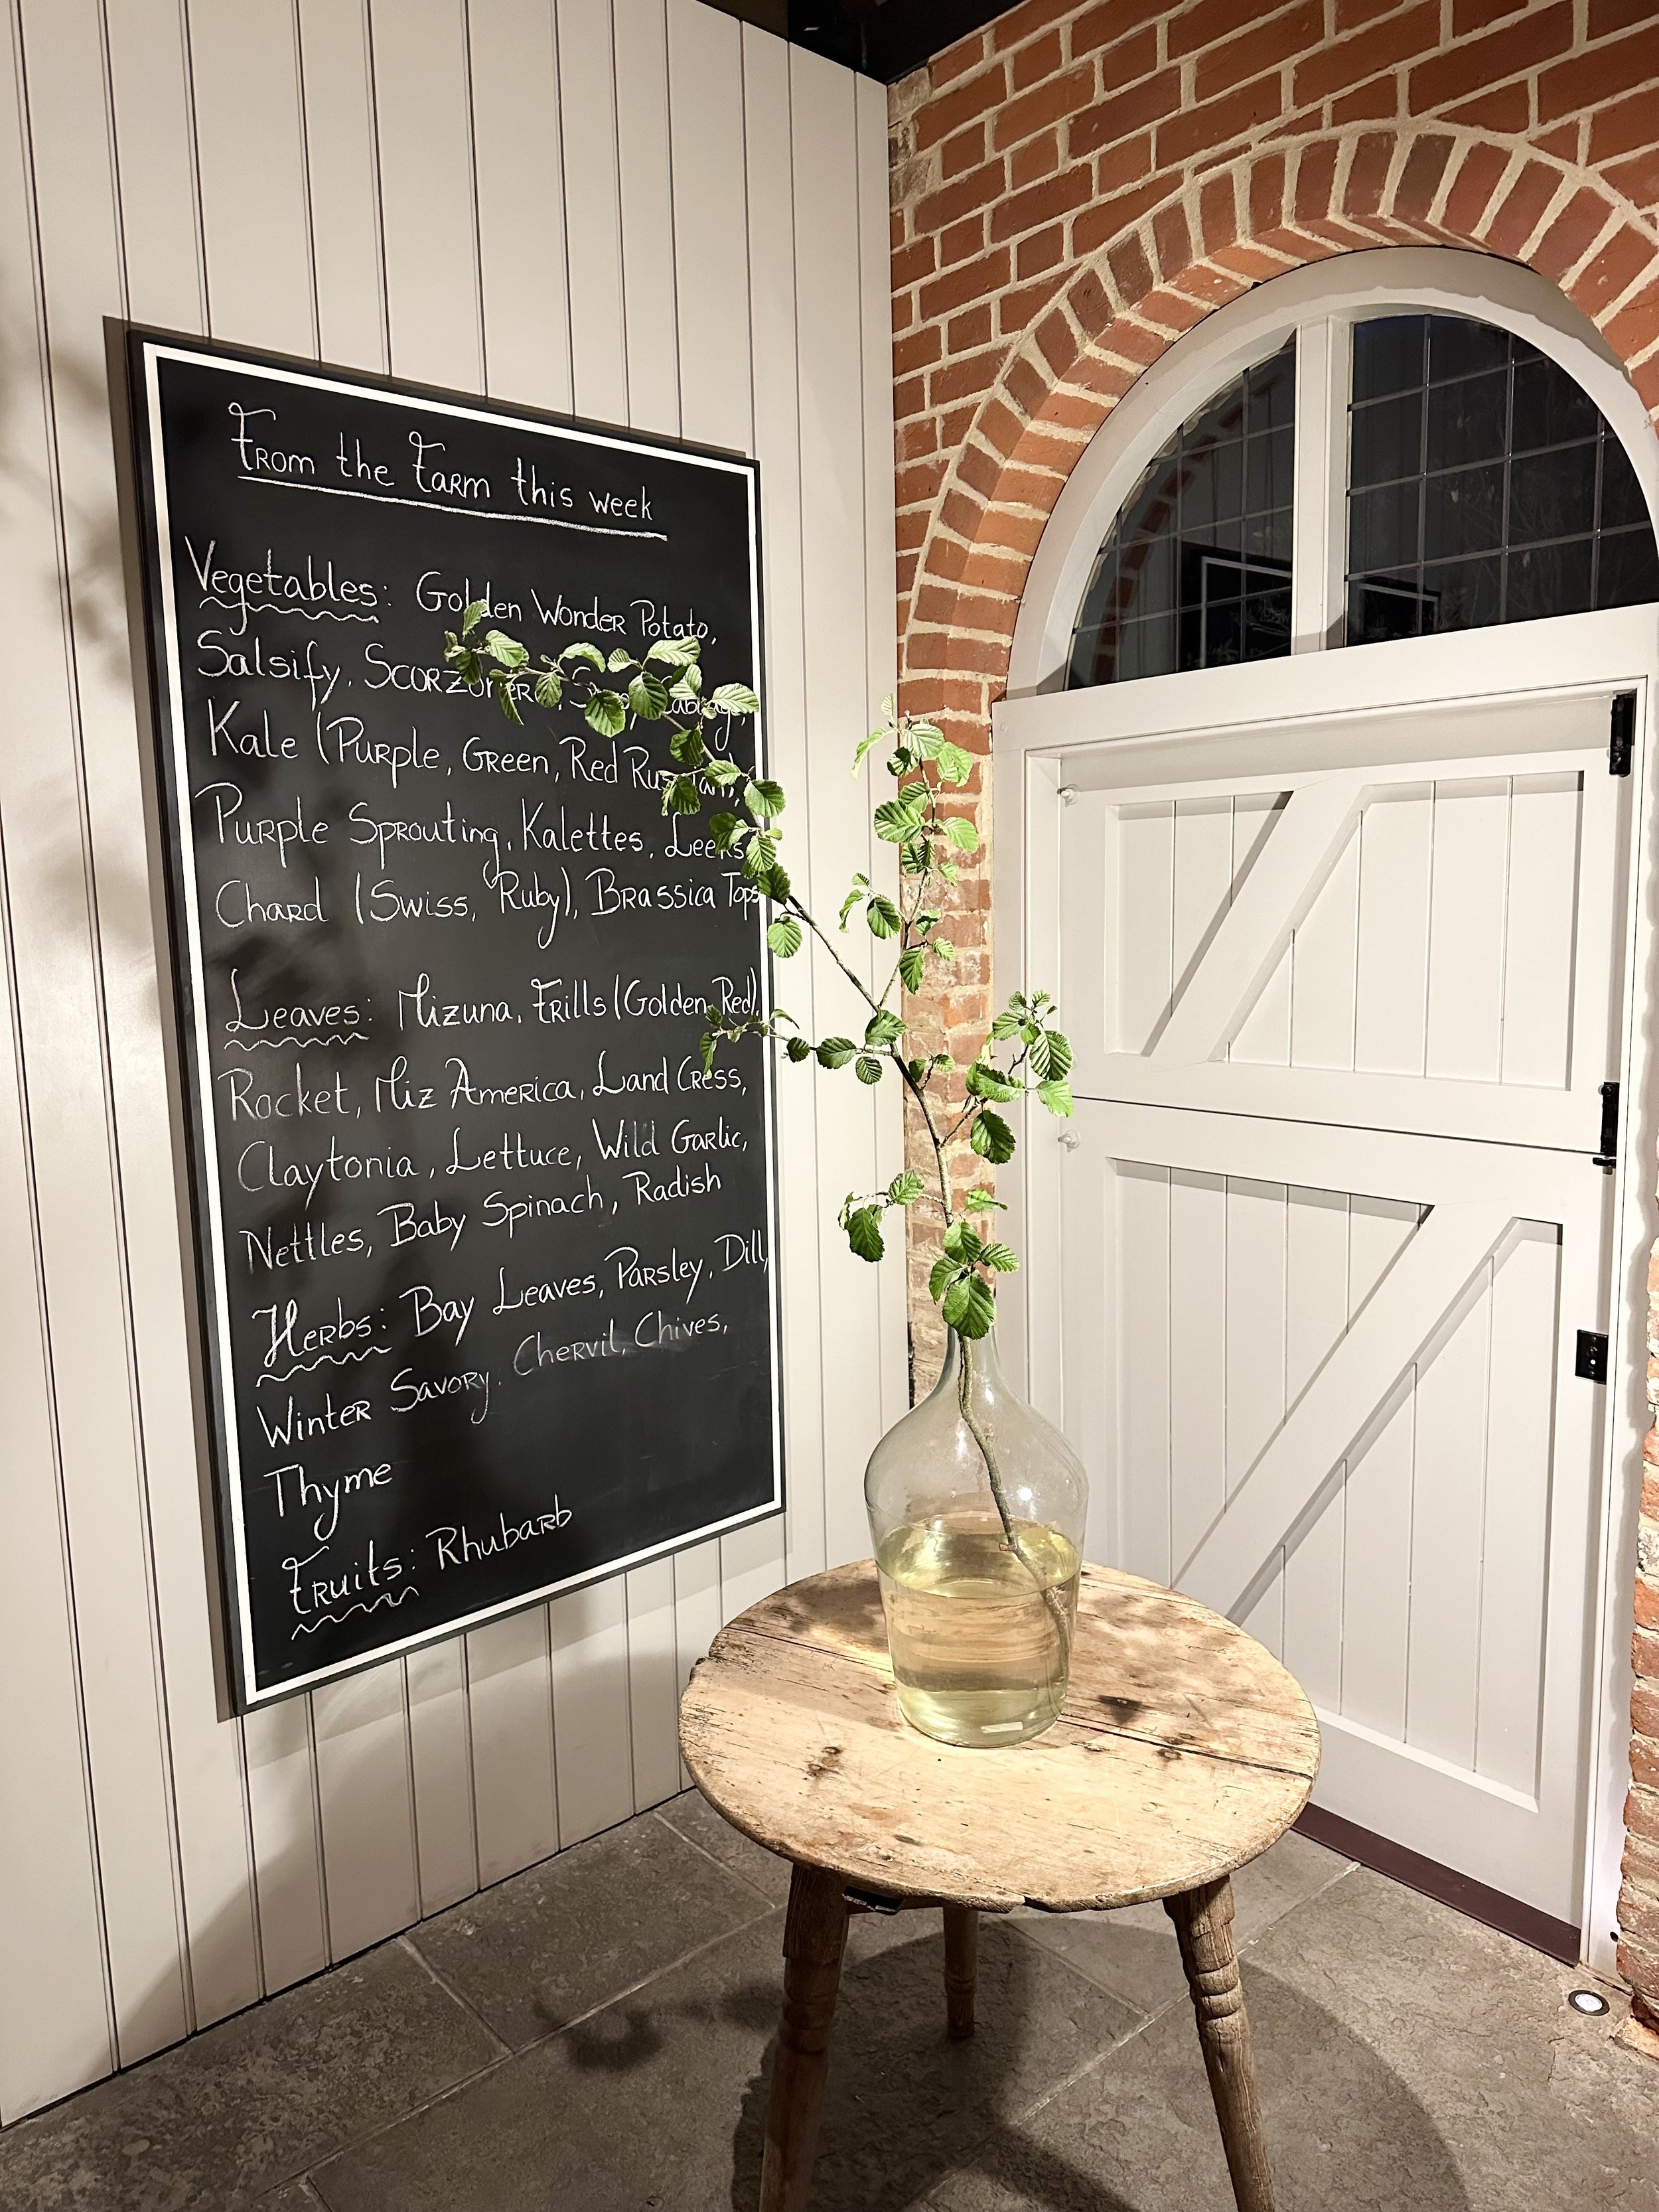 From the Farm this week
Vegetables: Golden Wonder Potato,
Salsify, Scorzonera, Cabbage,
Kale (Purple, Green, Red Russian),
Purple Sprouting, Kalettes, Leeks
Chard (Swiss, Ruby), Brassica Tops
Leaves: Mizuna, Frills (Golden, Red),
Rocket, Miz America, Land Cress,
Claytonia, Lettuce, Wild Garlic,
Nettles, Baby Spinach, Radish
Herbs: Bay Leaves, Parsley, Dill,
Winter Savory, Chervil, Chives,
Thyme
Fruits: Rhubarb